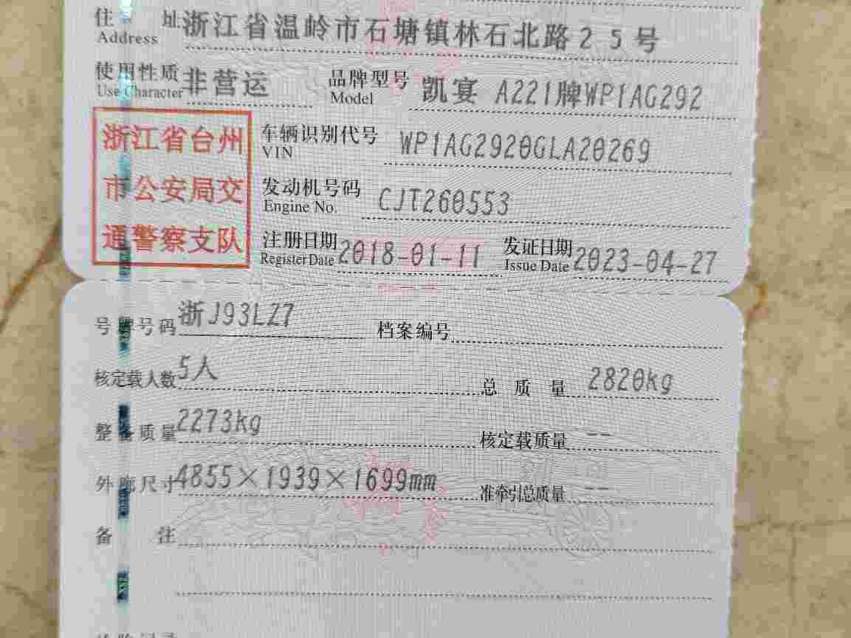 住 址 浙江省温岭市石塘镇林石北路25号
Address
使用性质 非营运 品牌型号 凯宴 A221牌WP1AG292
Use Character Model
浙江省台州
市公安局交
通警察支队
车辆识别代号 WP1AG2920GLA20269
VIN
发动机号码 CJT260553
Engine No.
注册日期 2018-01-11 发证日期 2023-04-27
Register Date Issue Date
号牌号码 浙J93LZ7 档案编号
核定载人数 5人 总质量 2820kg
整备质量 2273kg 核定载质量 --
外廓尺寸 4855×1939×1699mm 准牵引总质量 --
备 注